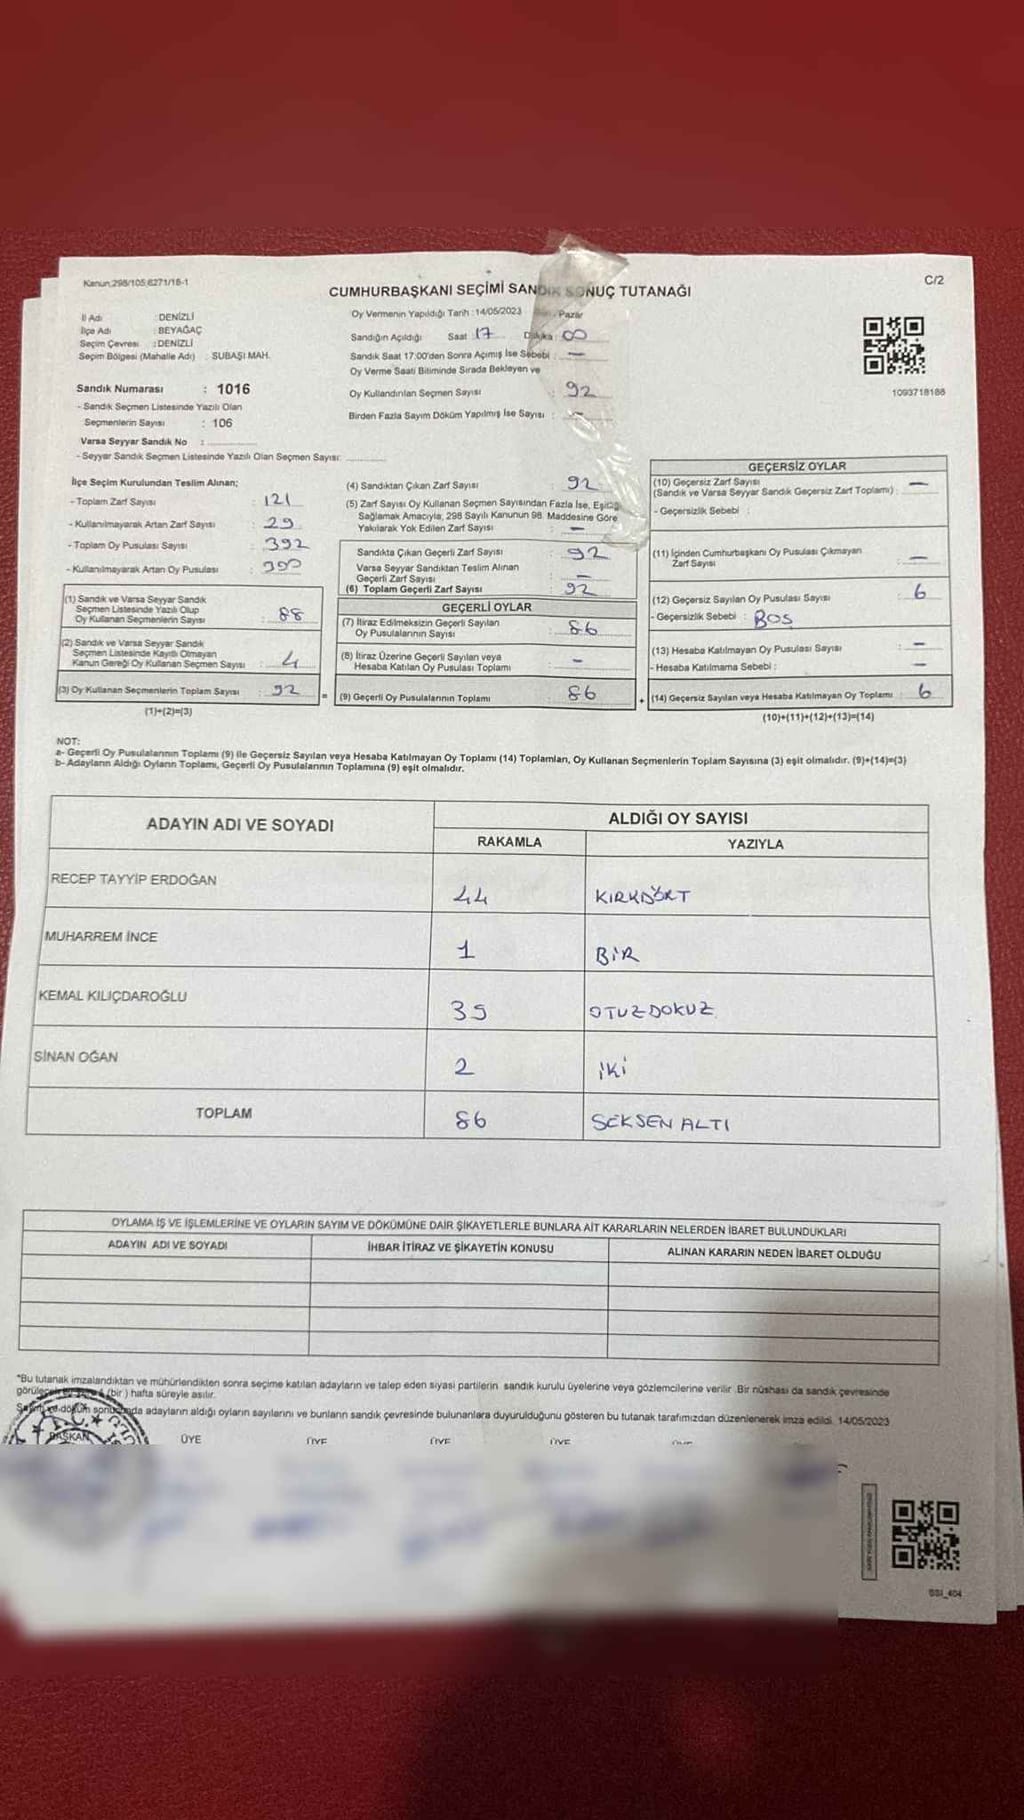 Kanun:298/105;6271/16-1
C/2
CUMHURBAŞKANI SEÇİMİ SANDIK SONUÇ TUTANAĞI
İl Adı : DENİZLİ
İlçe Adı : BEYAĞAÇ
Seçim Çevresi : DENİZLİ
Seçim Bölgesi (Mahalle Adı) : SUBAŞI MAH.
Sandık Numarası : 1016
- Sandık Seçmen Listesinde Yazılı Olan
Seçmenlerin Sayısı : 106
Varsa Seyyar Sandık No :
- Seyyar Sandık Seçmen Listesinde Yazılı Olan Seçmen Sayısı:
Oy Vermenin Yapıldığı Tarih : 14/05/2023 Pazar
Sandığın Açıldığı Saat 17 Dakika 00
Sandık Saat 17:00'den Sonra Açımış İse Sebebi : —
Oy Verme Saati Bitiminde Sırada Bekleyen ve
Oy Kullandırılan Seçmen Sayısı : 92
Birden Fazla Sayım Döküm Yapılmış İse Sayısı : -
1093718188
İlçe Seçim Kurulundan Teslim Alınan;
- Toplam Zarf Sayısı : 121
- Kullanılmayarak Artan Zarf Sayısı : 29
- Toplam Oy Pusulası Sayısı : 392
- Kullanılmayarak Artan Oy Pusulası :
(1) Sandık ve Varsa Seyyar Sandık
Seçmen Listesinde Yazılı Olup
Oy Kullanan Seçmenlerin Sayısı : 88
(2) Sandık ve Varsa Seyyar Sandık
Seçmen Listesinde Kayıtlı Olmayan
Kanun Gereği Oy Kullanan Seçmen Sayısı : 4
(3) Oy Kullanan Seçmenlerin Toplam Sayısı : 92
(1)+(2)=(3)
(4) Sandıktan Çıkan Zarf Sayısı : 92
(5) Zarf Sayısı Oy Kullanan Seçmen Sayısından Fazla İse, Eşitliği
Sağlamak Amacıyla, 298 Sayılı Kanunun 98. Maddesine Göre
Yakılarak Yok Edilen Zarf Sayısı : —
Sandıkta Çıkan Geçerli Zarf Sayısı : 92
Varsa Seyyar Sandıktan Teslim Alınan
Geçerli Zarf Sayısı : —
(6) Toplam Geçerli Zarf Sayısı : 92
GEÇERLİ OYLAR
(7) İtiraz Edilmeksizin Geçerli Sayılan
Oy Pusulalarının Sayısı : 86
(8) İtiraz Üzerine Geçerli Sayılan veya
Hesaba Katılan Oy Pusulası Toplamı : -
= (9) Geçerli Oy Pusulalarının Toplamı : 86
GEÇERSİZ OYLAR
(10) Geçersiz Zarf Sayısı
(Sandık ve Varsa Seyyar Sandık Geçersiz Zarf Toplamı) : —
- Geçersizlik Sebebi :
(11) İçinden Cumhurbaşkanı Oy Pusulası Çıkmayan
Zarf Sayısı : —
(12) Geçersiz Sayılan Oy Pusulası Sayısı : 6
- Geçersizlik Sebebi : BOŞ
(13) Hesaba Katılmayan Oy Pusulası Sayısı : —
- Hesaba Katılmama Sebebi : —
+ (14) Geçersiz Sayılan veya Hesaba Katılmayan Oy Toplamı : 6
(10)+(11)+(12)+(13)=(14)
NOT:
a- Geçerli Oy Pusulalarının Toplamı (9) ile Geçersiz Sayılan veya Hesaba Katılmayan Oy Toplamı (14) Toplamları, Oy Kullanan Seçmenlerin Toplam Sayısına (3) eşit olmalıdır. (9)+(14)=(3)
b- Adayların Aldığı Oyların Toplamı, Geçerli Oy Pusulalarının Toplamına (9) eşit olmalıdır.
ADAYIN ADI VE SOYADI
ALDIĞI OY SAYISI
RAKAMLA YAZIYLA
RECEP TAYYİP ERDOĞAN 44 KIRKDÖRT
MUHARREM İNCE 1 BİR
KEMAL KILIÇDAROĞLU 39 OTUZDOKUZ
SİNAN OĞAN 2 İKİ
TOPLAM 86 SEKSEN ALTI
OYLAMA İŞ VE İŞLEMLERİNE VE OYLARIN SAYIM VE DÖKÜMÜNE DAİR ŞİKAYETLERLE BUNLARA AİT KARARLARIN NELERDEN İBARET BULUNDUKLARI
ADAYIN ADI VE SOYADI İHBAR İTİRAZ VE ŞİKAYETİN KONUSU ALINAN KARARIN NEDEN İBARET OLDUĞU
*Bu tutanak imzalandıktan ve mühürlendikten sonra seçime katılan adayların ve talep eden siyasi partilerin sandık kurulu üyelerine veya gözlemcilerine verilir .Bir nüshası da sandık çevresinde
(bir) hafta süreyle asılır.
Sayım ve döküm sonucunda adayların aldığı oyların sayılarını ve bunların sandık çevresinde bulunanlara duyurulduğunu gösteren bu tutanak tarafımızdan düzenlenerek imza edildi. 14/05/2023
BAŞKAN ÜYE ÜYE ÜYE ÜYE ÜYE